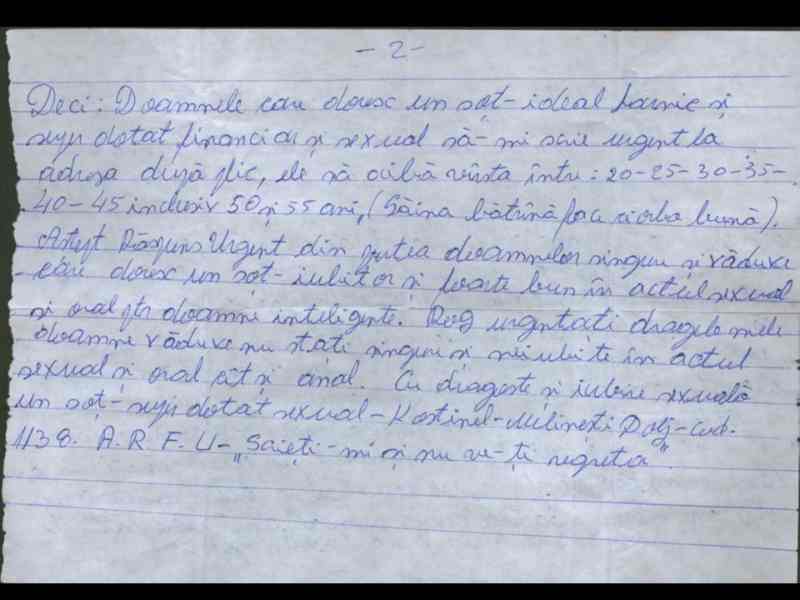 - 2 -
Deci: Doamnele care doresc un soț-ideal harnic și
super dotat financiar și sexual să-mi scrie urgent la
adresa după plic, ele să aibă vîrsta între: 20-25-30-35-
40-45 inclusiv 50 și 55 ani, (Găina bătrînă face ciorba bună).
Aștept Răspuns Urgent din partea doamnelor singure și văduve
care doresc un soț-iubitor și foarte bun în actul sexual
și oral ptr doamne inteligente. Rog urgentati dragele mele
doamne văduve nu stați singuri și neiubite în actul
sexual și oral cît și anal. Cu dragoste și iubire sexuală
un soț-super dotat sexual-Kostinel-Melinești Dolj-cod.
1138. A.R.F.U-„Scrieți-mi și nu ve-ți regreta"